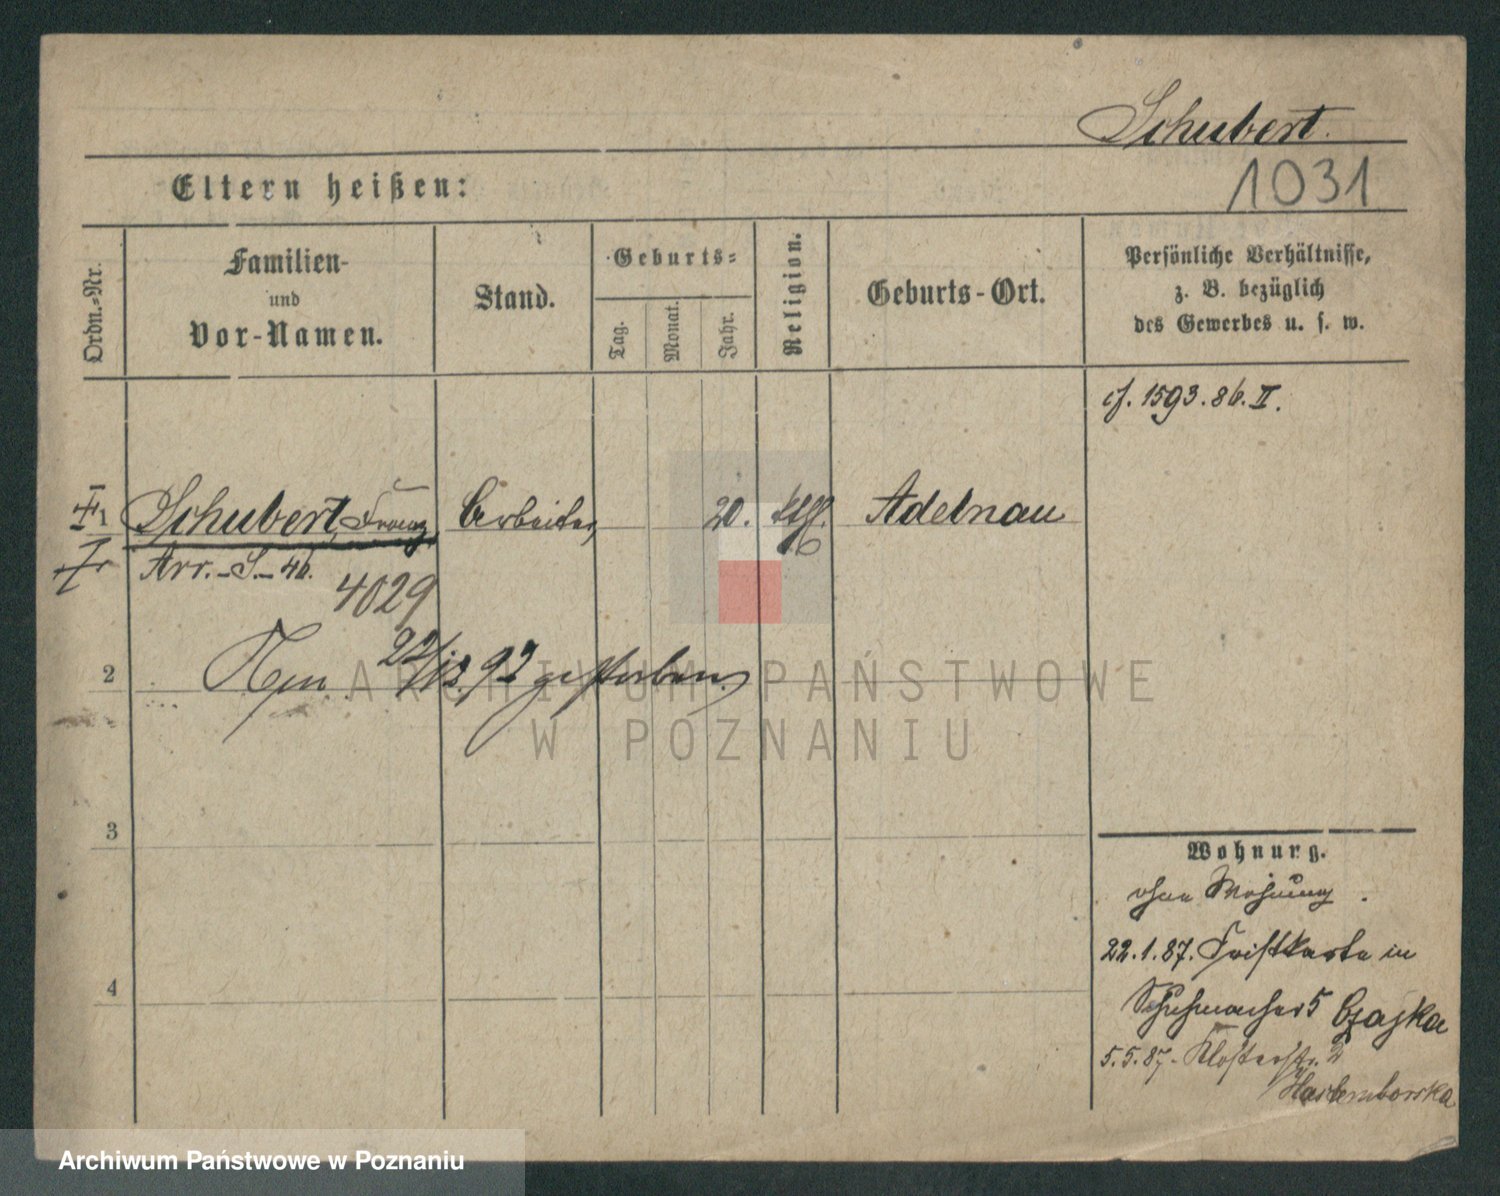 Schubert.
1031
Eltern heißen:
Ordn.-Nr.
Familien-
und
Vor-Namen.
Stand.
Geburts-
Tag.
Monat.
Jahr.
Religion.
Geburts-Ort.
Persönliche Verhältnisse,
z. B. bezüglich
des Gewerbes u. s. w.
cf. 1593.86.II.
1 Schubert, Franz Arbeiter, 20. kth. Adelnau
Arr.-S.-46.
4029
2
22/12.92 gestorben.
3
4
Wohnung.
ohne Wohnung.
22.1.87. in
Schuhmacher 5 Czajka
5.5.87. Klosterstr. 2
ARCHIWUM PAŃSTWOWE
W POZNANIU
Archiwum Państwowe w Poznaniu